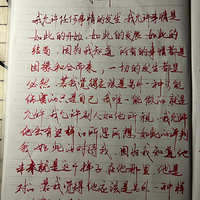 我允许任何事情的发生，我允许事情是
如此的开始，如此的发展，如此的
结局，因为我知道，所有的事情都是
因缘和合而来，一切的发生都是
必然，若我觉得应该是另外一种可能
伤害的只是自己，我唯一能做的就是
允许，我允许别人如他所是，我允许
他会有这样的所思所想，如此的评判
我，如此的对待我，因为我知道他
本来就是这个样子，在他那里，他是
对的，若我觉得他应该是另外一种样